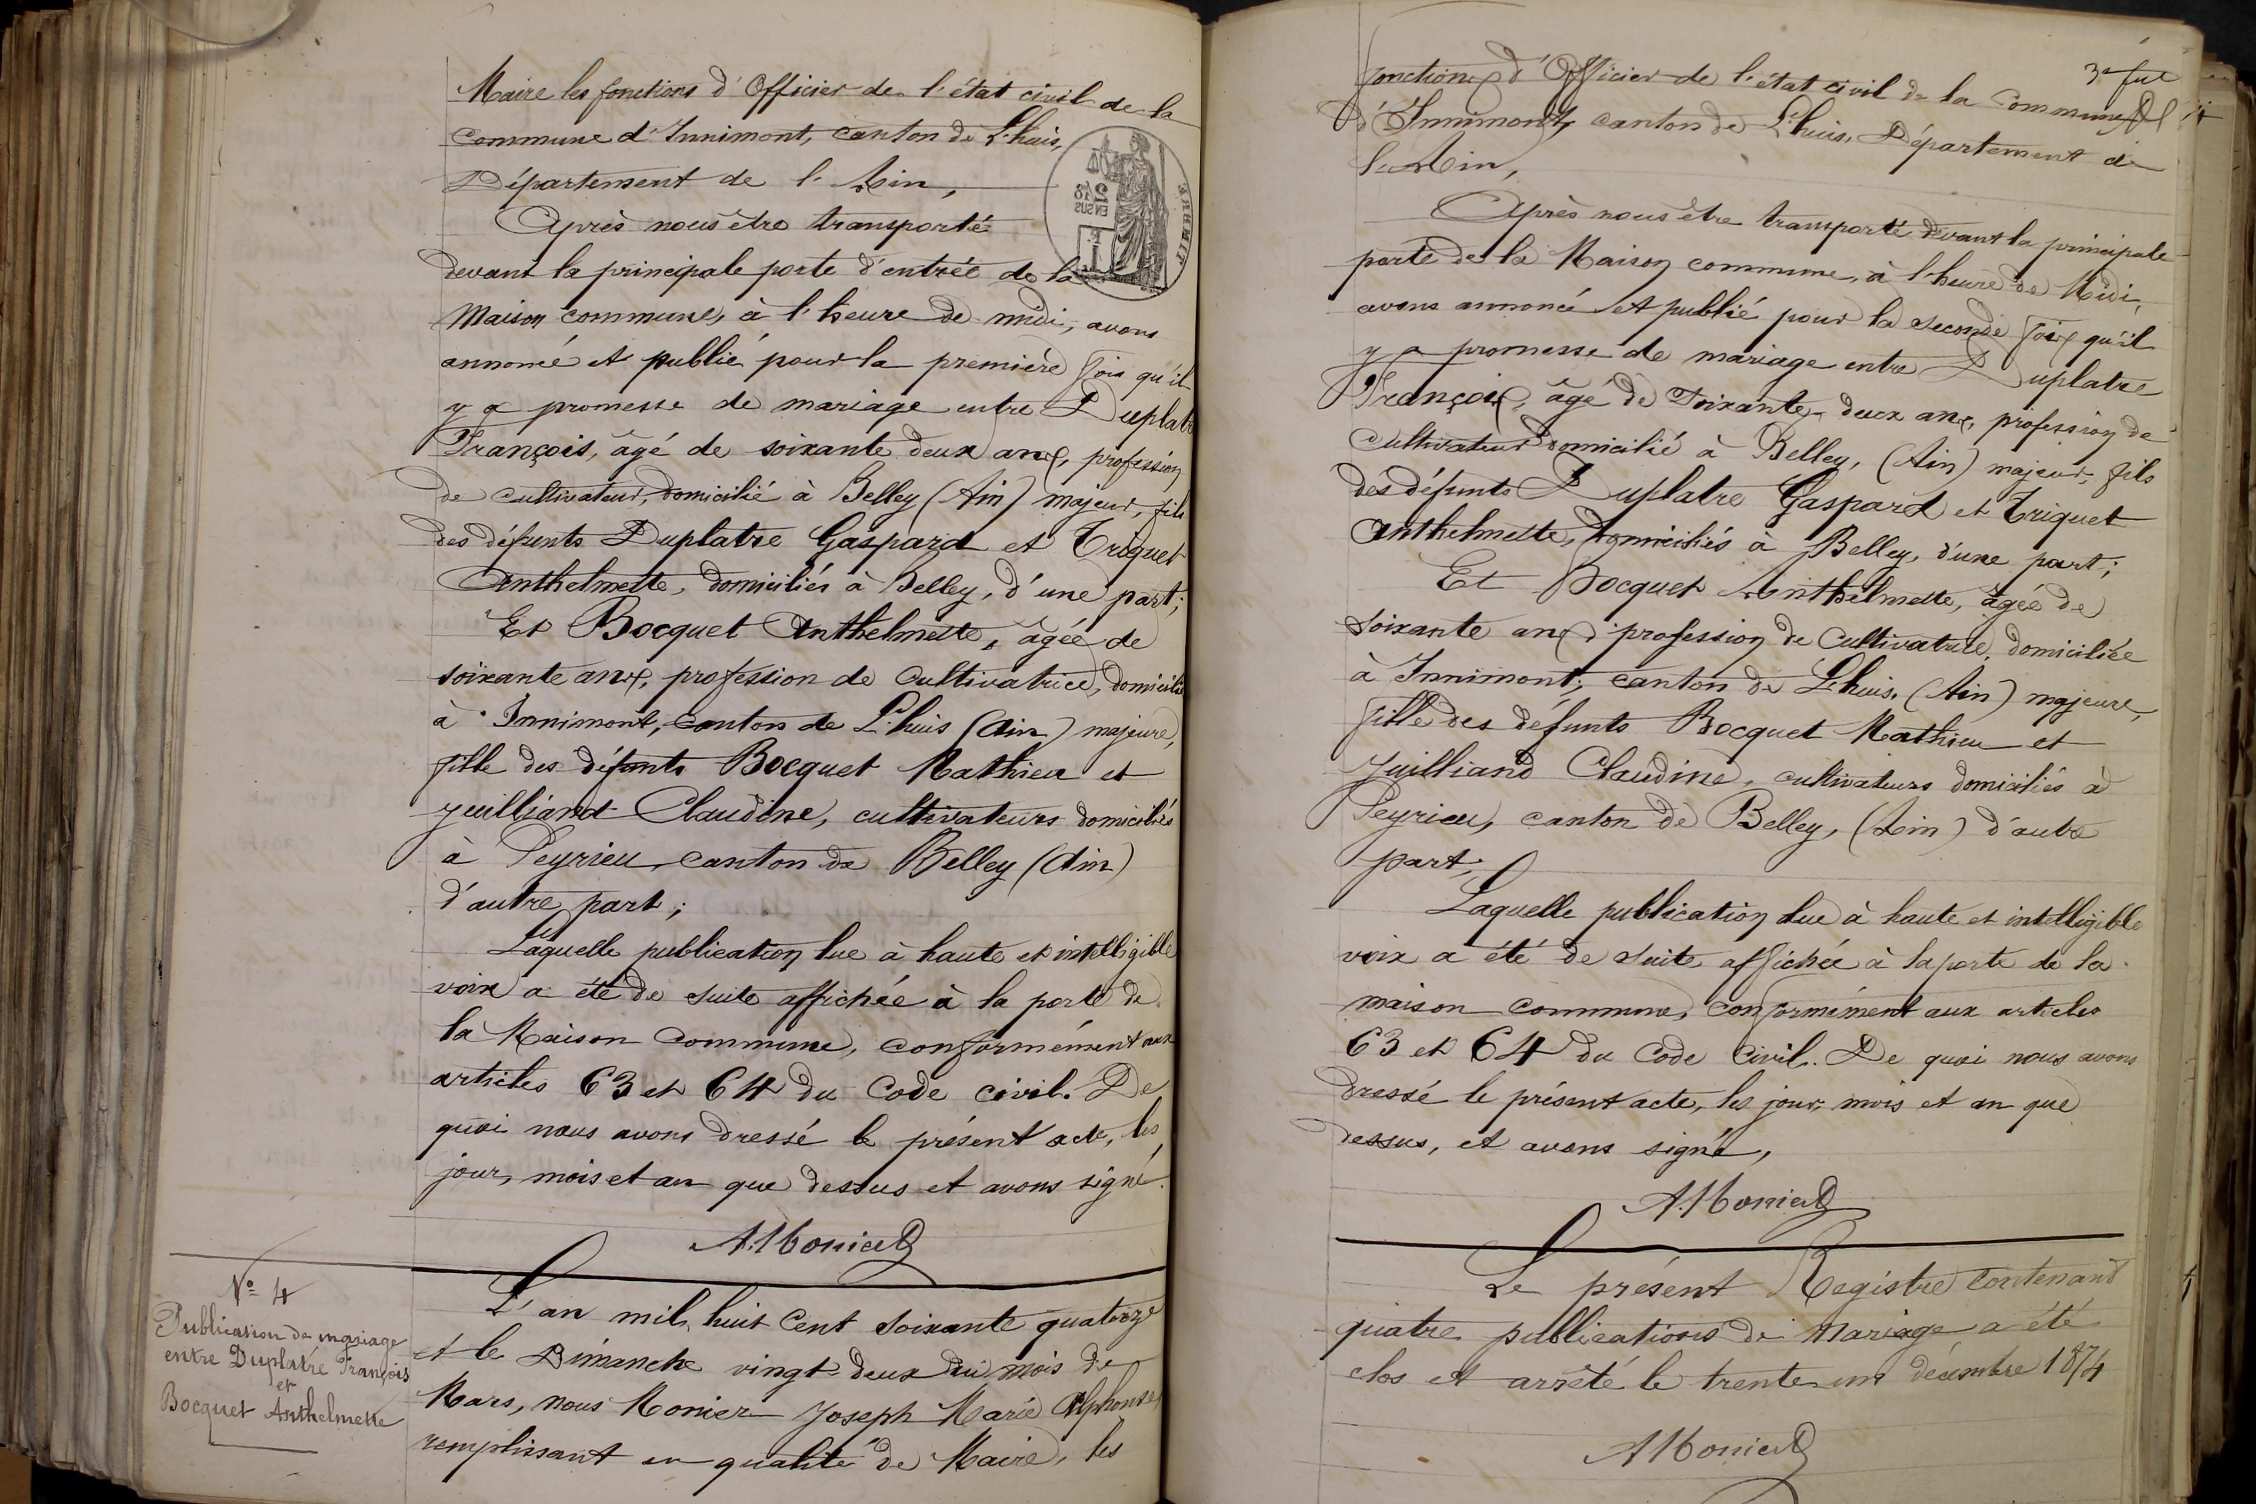 Maire les fonctions d'Officier de l'état civil de la
commune d'Innimont, canton de L'huis,
Département de l'Ain,
Après nous être transporté
devant la principale porte d'entrée de la
Maison commune, à l'heure de midi, avons
annoncé et publié pour la première fois qu'il
y a promesse de mariage entre Duplatre
François, âgé de soixante deux ans, profession
de cultivateur, domicilié à Belley (Ain) majeur, fils
des défunts Duplatre Gaspard et Triquet
Anthelmette, domiciliés à Belley, d'une part;
Et Bocquet Anthelmette, âgée de
soixante ans, profession de Cultivatrice, domiciliée
à Innimont, canton de L'huis (Ain) majeure,
fille des défunts Bocquet Mathieu et
Juilliand Claudine, cultivateurs domiciliés
à Peyrieu, canton de Belley (Ain)
d'autre part;
Laquelle publication lue à haute et intelligible
voix a été de suite affichée à la porte de
la Maison Commune, conformément aux
articles 63 et 64 du Code civil. De
quoi nous avons dressé le présent acte, les
jour, mois et an que dessus et avons signé.
A. Monier
Nº 4
Publication de mariage
entre Duplatre François
et
Bocquet Anthelmette
L'an mil huit cent soixante quatorze
et le Dimanche vingt-deux du mois de
Mars, nous Monier Joseph Marie Alphonse,
remplissant en qualité de Maire, les
3e
fonctions d'Officier de l'état civil de la Commune
d'Innimont, canton de L'huis, Département de
l'Ain,
Après nous être transporté devant la principale
porte de la Maison commune, à l'heure de Midi,
avons annoncé et publié pour la seconde fois qu'il
y a promesse de mariage entre Duplatre
François, âgé de Soixante-deux ans, profession de
Cultivateur domicilié à Belley, (Ain) majeur, fils
des défunts Duplatre Gaspard et Triquet
Anthelmette, domiciliés à Belley, d'une part;
Et Bocquet Anthelmette, âgée de
soixante ans, profession de Cultivatrice, domiciliée
à Innimont, canton de L'huis, (Ain) majeure,
fille des défunts Bocquet Mathieu et
Juilliand Claudine, cultivateurs domiciliés à
Peyrieu, canton de Belley, (Ain) d'autre
part;
Laquelle publication lue à haute et intelligible
voix a été de suite affichée à la porte de la
maison commune, conformément aux articles
63 et 64 du Code Civil. De quoi nous avons
dressé le présent acte, les jour, mois et an que
dessus, et avons signé,
A. Monier
Le présent Registre contenant
quatre publications de mariage a été
clos et arrêté le trente un décembre 1874
A Monier